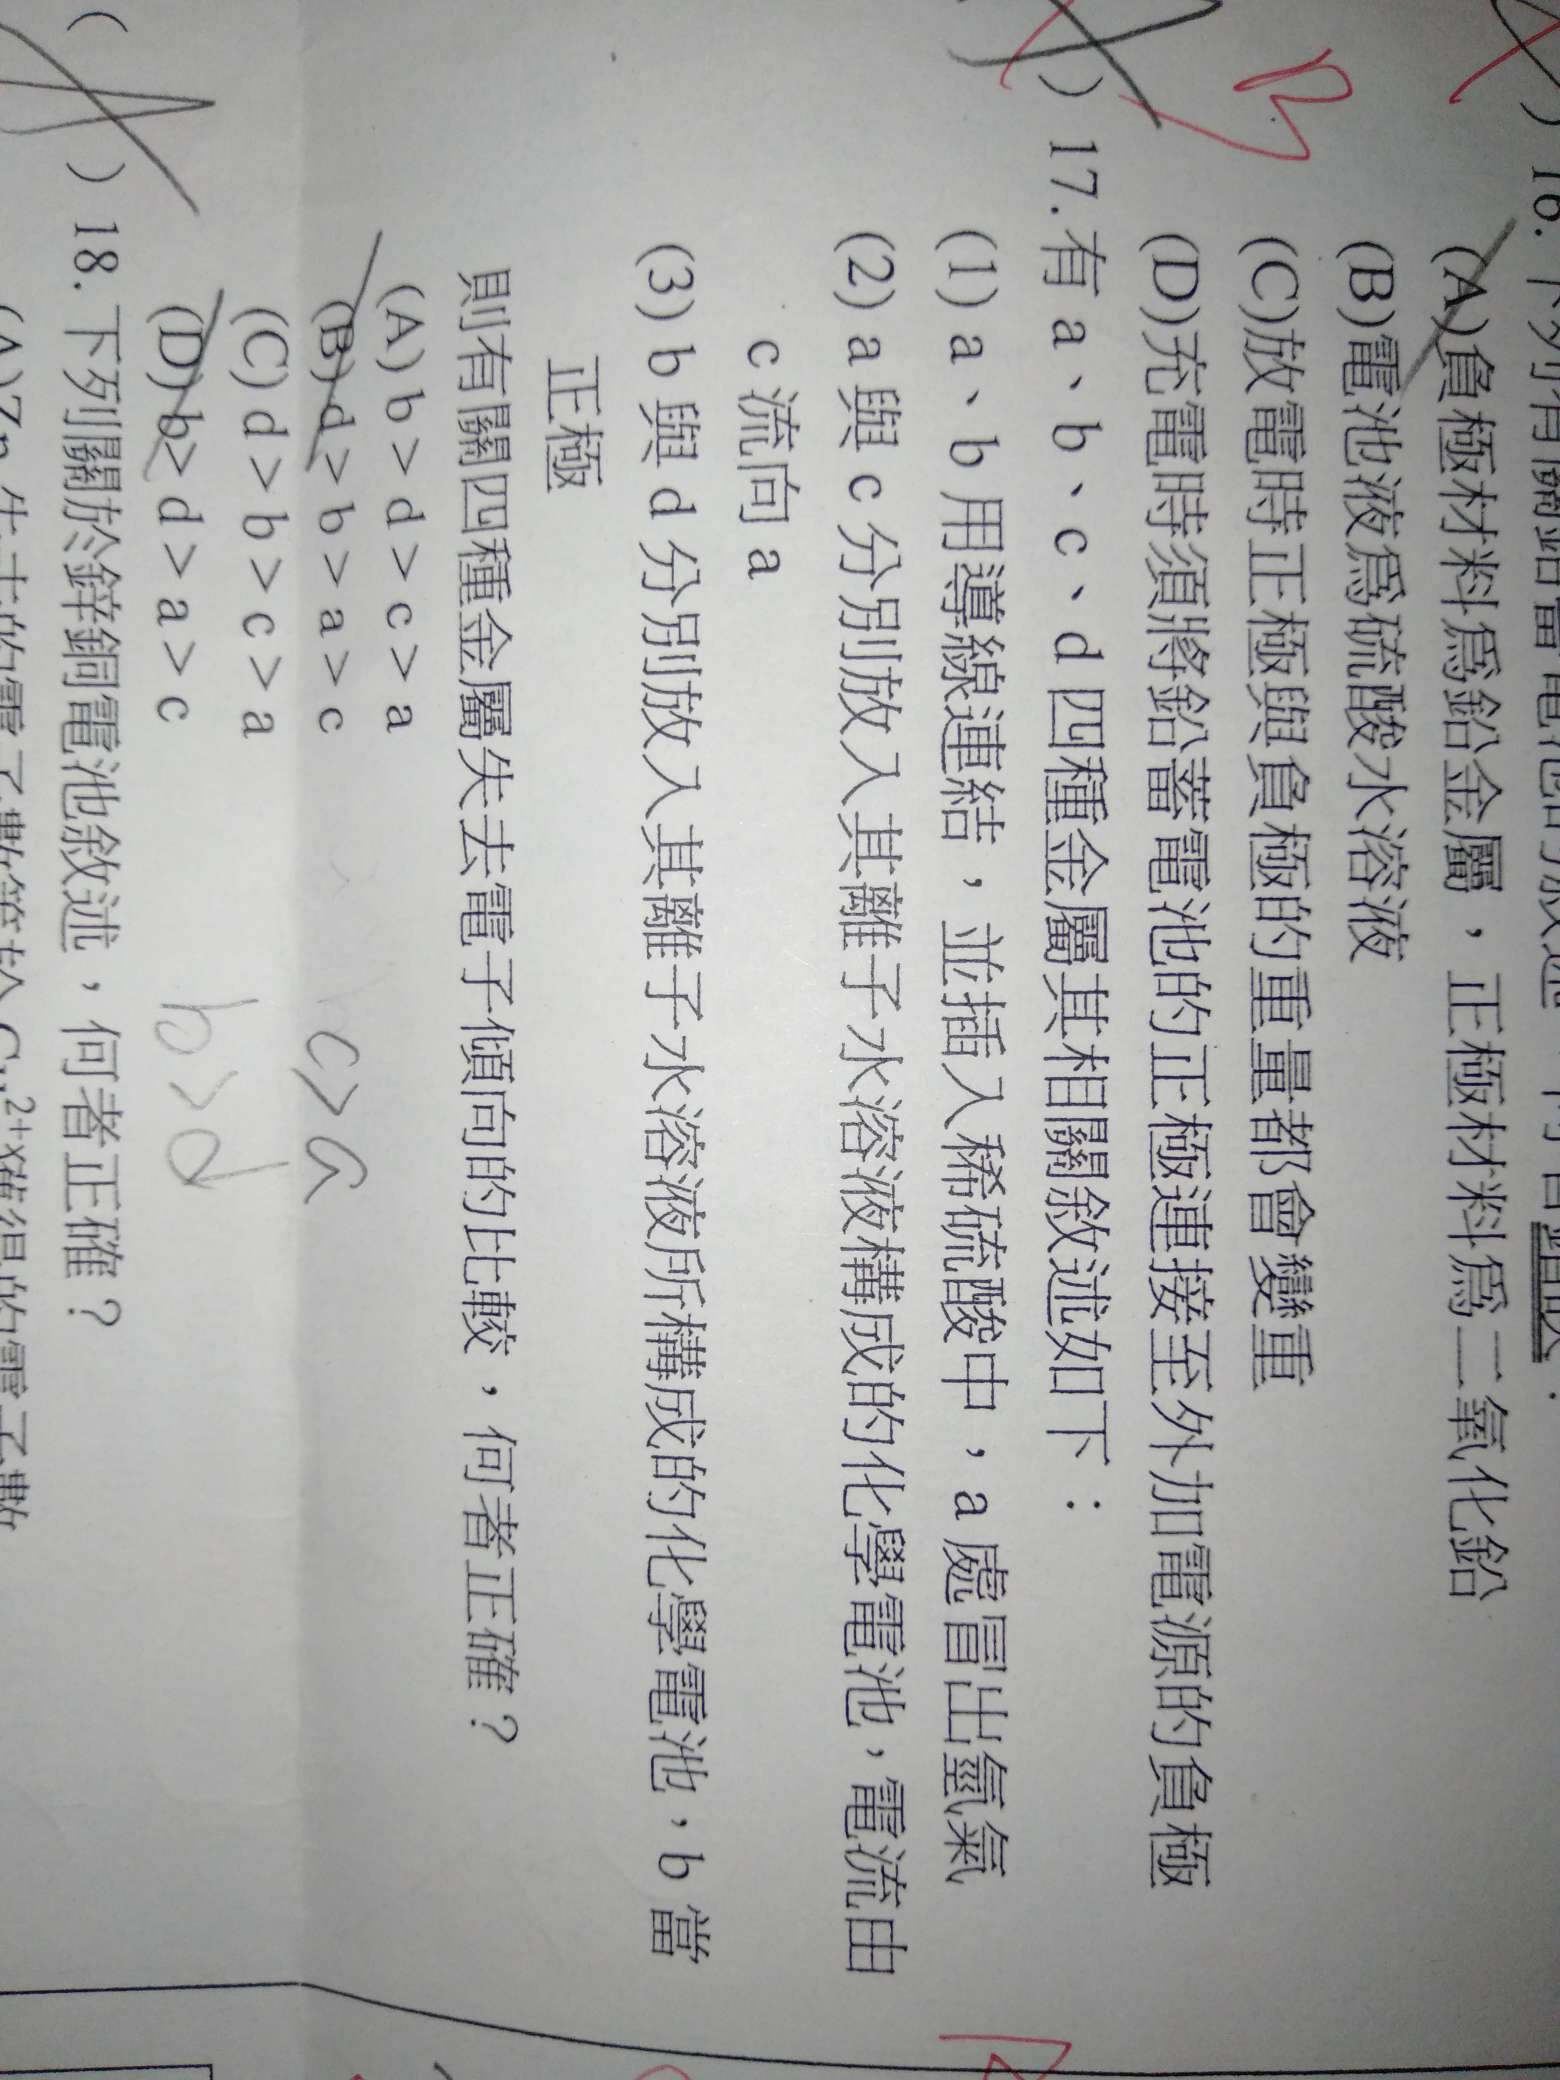 B
)16.下列有關鉛蓄電池的敘述
(A)負極材料為鉛金屬，正極材料為二氧化鉛
(B)電池液為硫酸水溶液
(C)放電時正極與負極的重量都會變重
(D)充電時須將鉛蓄電池的正極連接至外加電源的負極
)17.有a、b、c、d四種金屬其相關敘述如下：
(1)a、b用導線連結，並插入稀硫酸中，a處冒出氫氣
(2)a與c分別放入其離子水溶液構成的化學電池，電流由
c流向a
(3)b與d分別放入其離子水溶液所構成的化學電池，b當
正極
則有關四種金屬失去電子傾向的比較，何者正確？
(A)b>d>c>a
(B)d>b>a>c
(C)d>b>c>a
(D)b>d>a>c
c>a
b>d
( )18.下列關於鋅銅電池敘述，何者正確？
(A)Zn失去的電子數等於Cu²⁺獲得的電子數